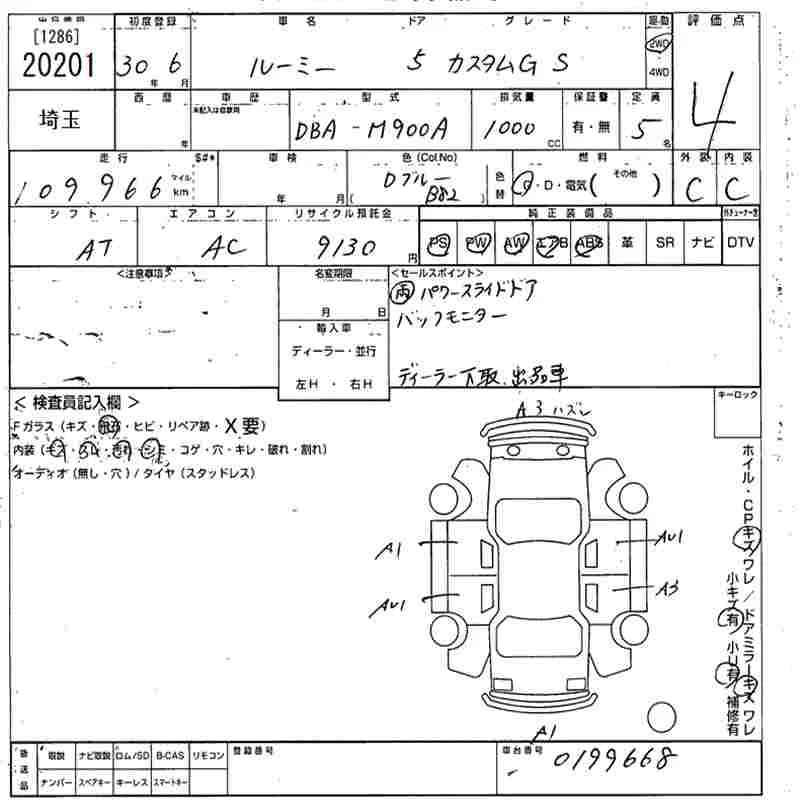 [1286]
20201
初度登録
30年 6月
車名 ドア グレード
ルーミー 5 カスタムG S
駆動
2WD
4WD
評価点
4
埼玉
西暦
年
車歴
未記入は自家用
型式
DBA-M900A
排気量
1000 CC
保証書
有・無
定員
5名
走行 S#*
109,966 マイル km
車検
年 月
色(Col.No)
Dブルー
( B82 )
色替
燃料
G・D・電気( その他 )
外装 内装
C C
シフト
AT
エアコン
AC
リサイクル預託金
9130円
純正装備品
PS PW AW エアB ABS 革 SR ナビ DTV
<注意事項>
名変期限
月 日
輸入車
ディーラー・並行
左H・右H
<セールスポイント>
両パワースライドドア
バックモニター
ディーラー下取、出品車
<検査員記入欄>
Fガラス(キズ・飛石・ヒビ・リペア跡・X要)
内装(キズ・スレ・汚れ・シミ・コゲ・穴・キレ・破れ・割れ)
オーディオ(無し・穴)/タイヤ(スタッドレス)
キーロック
A3 ハズレ
A1
AU1
AU1
A3
A1
ホイル・CPキズワレ/ドアミラーキズワレ
小キズ有/小U有/補修有
後送品
取説 ナビ取説 ロム/SD B-CAS リモコン
ナンバー スペアキー キーレス スマートキー
登録番号
車台番号
0199668